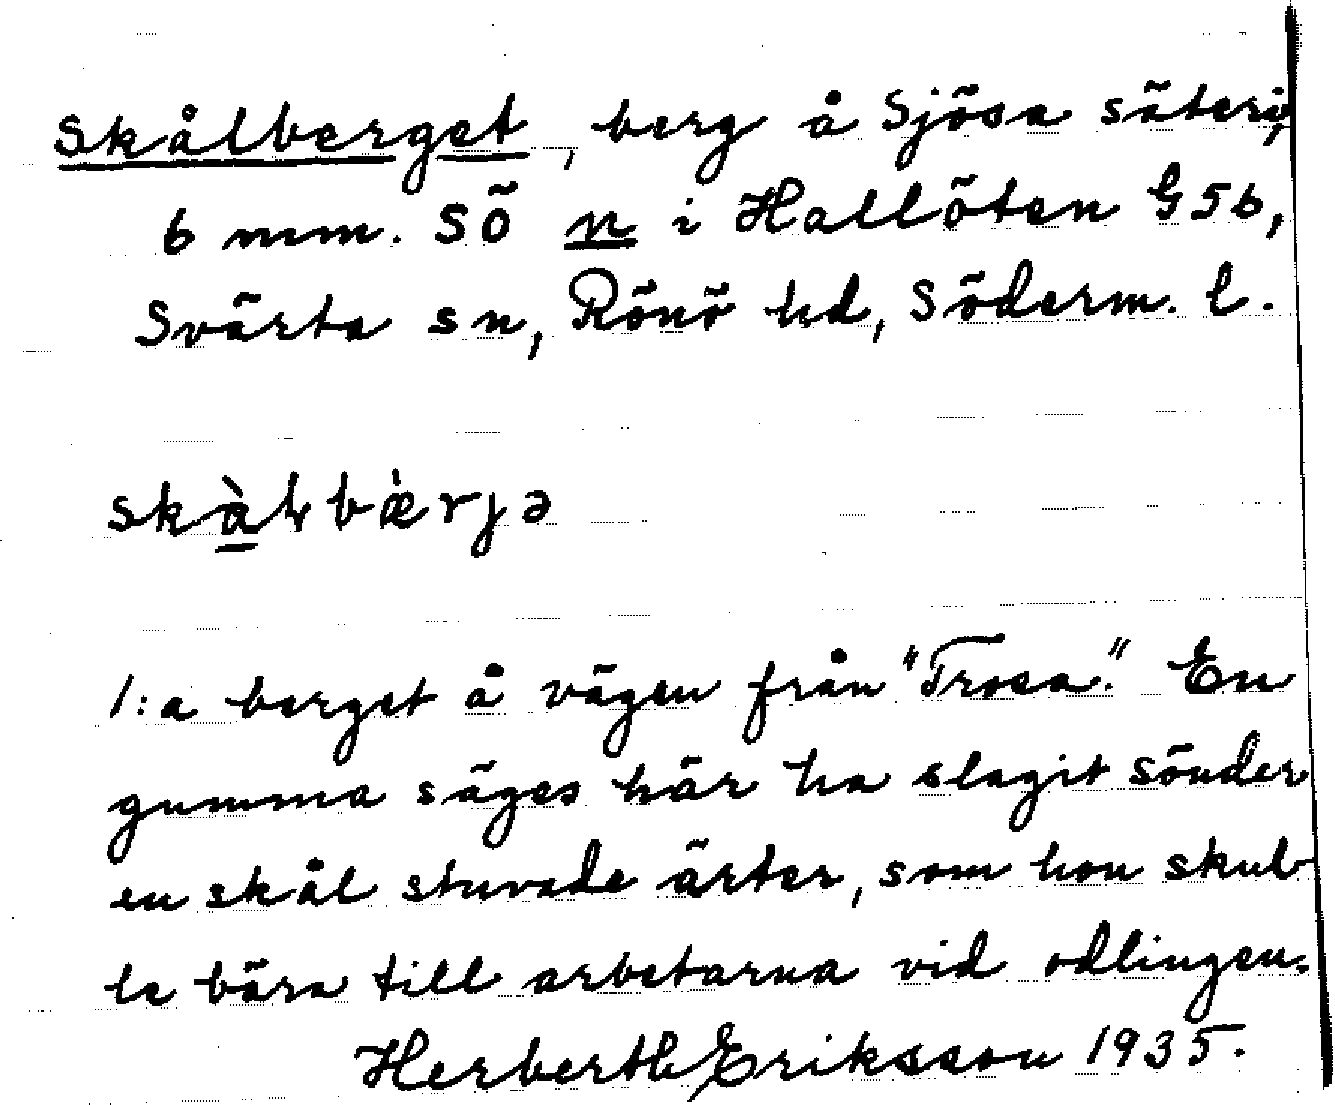 Skålberget, berg å Sjösa säteri,
6 mm. SÖ n i Hallöten G5b,
Svärta sn, Rönö hd, Söderm. l.
skàlbæ̀rjə
1:a berget å vägen från "Trosa." En
gumma säges här ha slagit sönder
en skål stuvade ärter, som hon skul-
le bära till arbetarna vid odlingen.
Herberth Eriksson 1935.